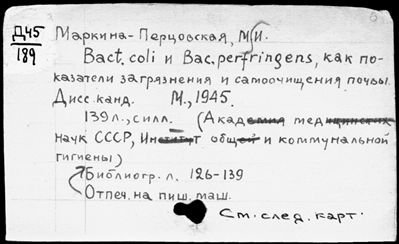 Д45
189
Маркина-Перцовская, М.И.
Bact. coli и Bac. perfringens, как по-
казатели загрязнения и самоочищения почвы.
Дисс. канд. М., 1945.
139 л., силл. (Академия медицинских
наук СССР, Институт общей и коммунальной
гигиены)
Библиогр. л. 126-139
Отпеч. на пиш. маш.
См. след. карт.